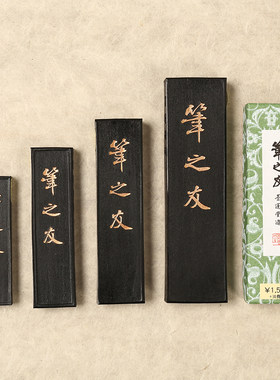 筆之友
筆之友
筆之友
筆之友
¥1,5